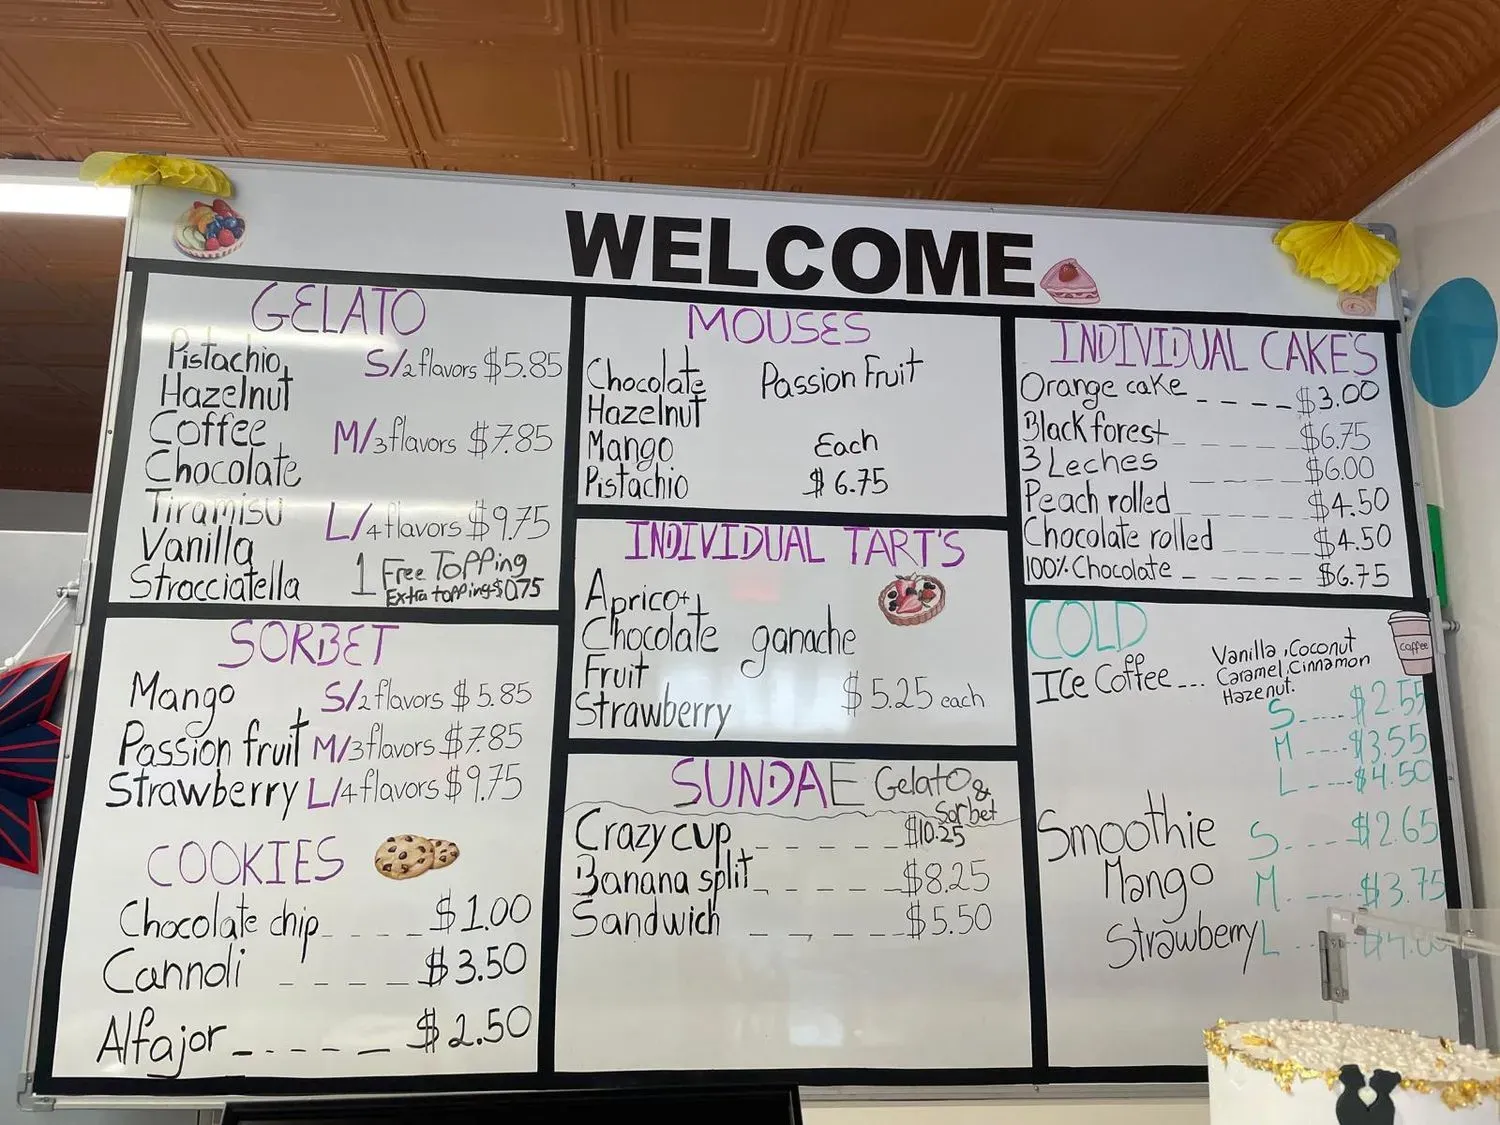 WELCOME
GELATO
Pistachio
S/2 flavors $5.85
Hazelnut
Coffee
M/3 flavors $7.85
Chocolate
Tiramisu
L/4 flavors $9.75
Vanilla
Stracciatella
1 Free Topping
Extra topping $0.75
SORBET
Mango S/2 flavors $5.85
Passion fruit M/3 flavors $7.85
Strawberry L/4 flavors $9.75
COOKIES
Chocolate chip $1.00
Cannoli $3.50
Alfajor $2.50
MOUSES
Chocolate Passion Fruit
Hazelnut
Mango Each
Pistachio $6.75
INDIVIDUAL TART'S
Apricot
Chocolate ganache
Fruit
Strawberry $5.25 each
SUNDAE Gelato &
Sorbet
Crazy cup $10.25
Banana split $8.25
Sandwich $5.50
INDIVIDUAL CAKE'S
Orange cake $3.00
Black forest $6.75
3 Leches $6.00
Peach rolled $4.50
Chocolate rolled $4.50
100% Chocolate $6.75
COLD
coffee
Ice Coffee Vanilla, Coconut
Caramel, Cinnamon
Hazenut.
S $2.55
M $3.55
L $4.50
Smoothie S $2.65
Mango M $3.75
Strawberry L